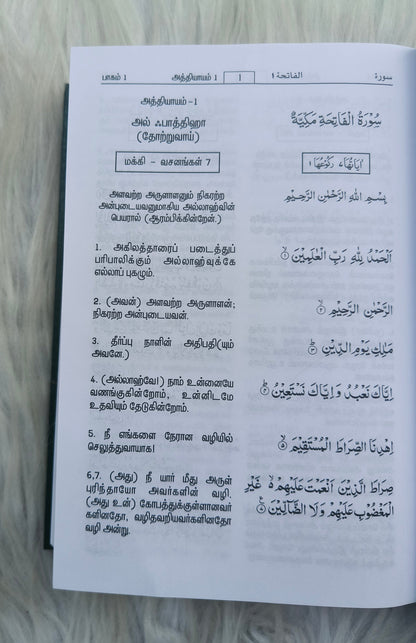 பாகம் 1 அத்தியாயம் 1 1 الفاتحة ١ سورة
அத்தியாயம் -1
அல் ஃபாத்திஹா
(தோற்றுவாய்)
மக்கி - வசனங்கள் 7
அளவற்ற அருளாளனும் நிகரற்ற
அன்புடையவனுமாகிய அல்லாஹ்வின்
பெயரால் (ஆரம்பிக்கின்றேன்.)
1. அகிலத்தாரைப் படைத்துப்
பரிபாலிக்கும் அல்லாஹ்வுக்கே
எல்லாப் புகழும்.
2. (அவன்) அளவற்ற அருளாளன்;
நிகரற்ற அன்புடையவன்.
3. தீர்ப்பு நாளின் அதிபதி(யும்
அவனே.)
4. (அல்லாஹ்வே!) நாம் உன்னையே
வணங்குகின்றோம், உன்னிடமே
உதவியும் தேடுகின்றோம்.
5. நீ எங்களை நேரான வழியில்
செலுத்துவாயாக!
6,7. (அது) நீ யார் மீது அருள்
புரிந்தாயோ அவர்களின் வழி.
(அது உன்) கோபத்துக்குள்ளானவர்
களினதோ, வழிதவறியவர்களினதோ
வழி அன்று.
سُوْرَةُ الْفَاتِحَةِ مَكِّيَّةٌ
اٰيَاتُهَا ٧ رُكُوْعُهَا ١
بِسْمِ اللهِ الرَّحْمٰنِ الرَّحِيْمِ
اَلْحَمْدُ لِلّٰهِ رَبِّ الْعٰلَمِيْنَ ۙ‏ ١
الرَّحْمٰنِ الرَّحِيْمِ ۙ‏ ٢
مٰلِكِ يَوْمِ الدِّيْنِ ؕ‏ ٣
اِيَّاكَ نَعْبُدُ وَاِيَّاكَ نَسْتَعِيْنُ ؕ‏ ٤
اِهْدِنَا الصِّرَاطَ الْمُسْتَقِيْمَ ۙ‏ ٥
صِرَاطَ الَّذِيْنَ اَنْعَمْتَ عَلَيْهِمْ ۙ ٦ غَيْرِ
الْمَغْضُوْبِ عَلَيْهِمْ وَلَا الضَّآلِّيْنَ ٧